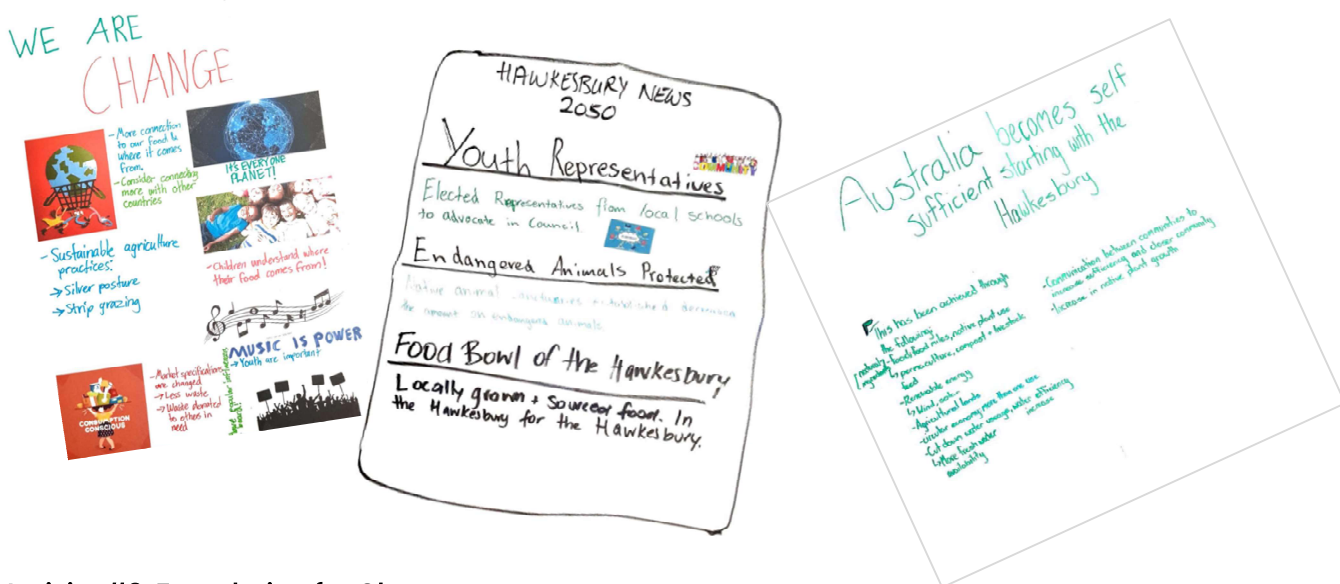 WE ARE
CHANGE
- More connection
to our food &
where it comes
from.
- Consider connecting
more with other
countries
IT'S EVERYONE
PLANET!
- Sustainable agriculture
practices:
→ Silver posture
→ Strip grazing
- Children understand where
their food comes from!
MUSIC IS POWER
→ Youth are important
- Market specifications
are changed
→ Less waste
→ Waste donated
to others in
need
CONSUMPTION
CONSCIOUS
HAWKESBURY NEWS
2050
Youth Representatives
COMMUNITY
Elected Representatives from local schools
to advocate in Council.
Endangered Animals Protected
Native animal sanctuaries established decreasing
the amount on endangered animals.
Food Bowl of the Hawkesbury!
Locally grown + Sourced food. In
the Hawkesbury for the Hawkesbury.
Australia becomes self
sufficient starting with the
Hawkesbury
This has been achieved through
the following:
- food food miles, native plant use
↳ permaculture, compost + livestock
feed
- Renewable energy
↳ Wind, solar
- Agricultural lands
- circular economy more than one use
- Cut down water useage, water efficiency
increase
↳ More fresh water
availability
- Communication between communities to
increase sufficiency and closer community
- Increase in native plant growth